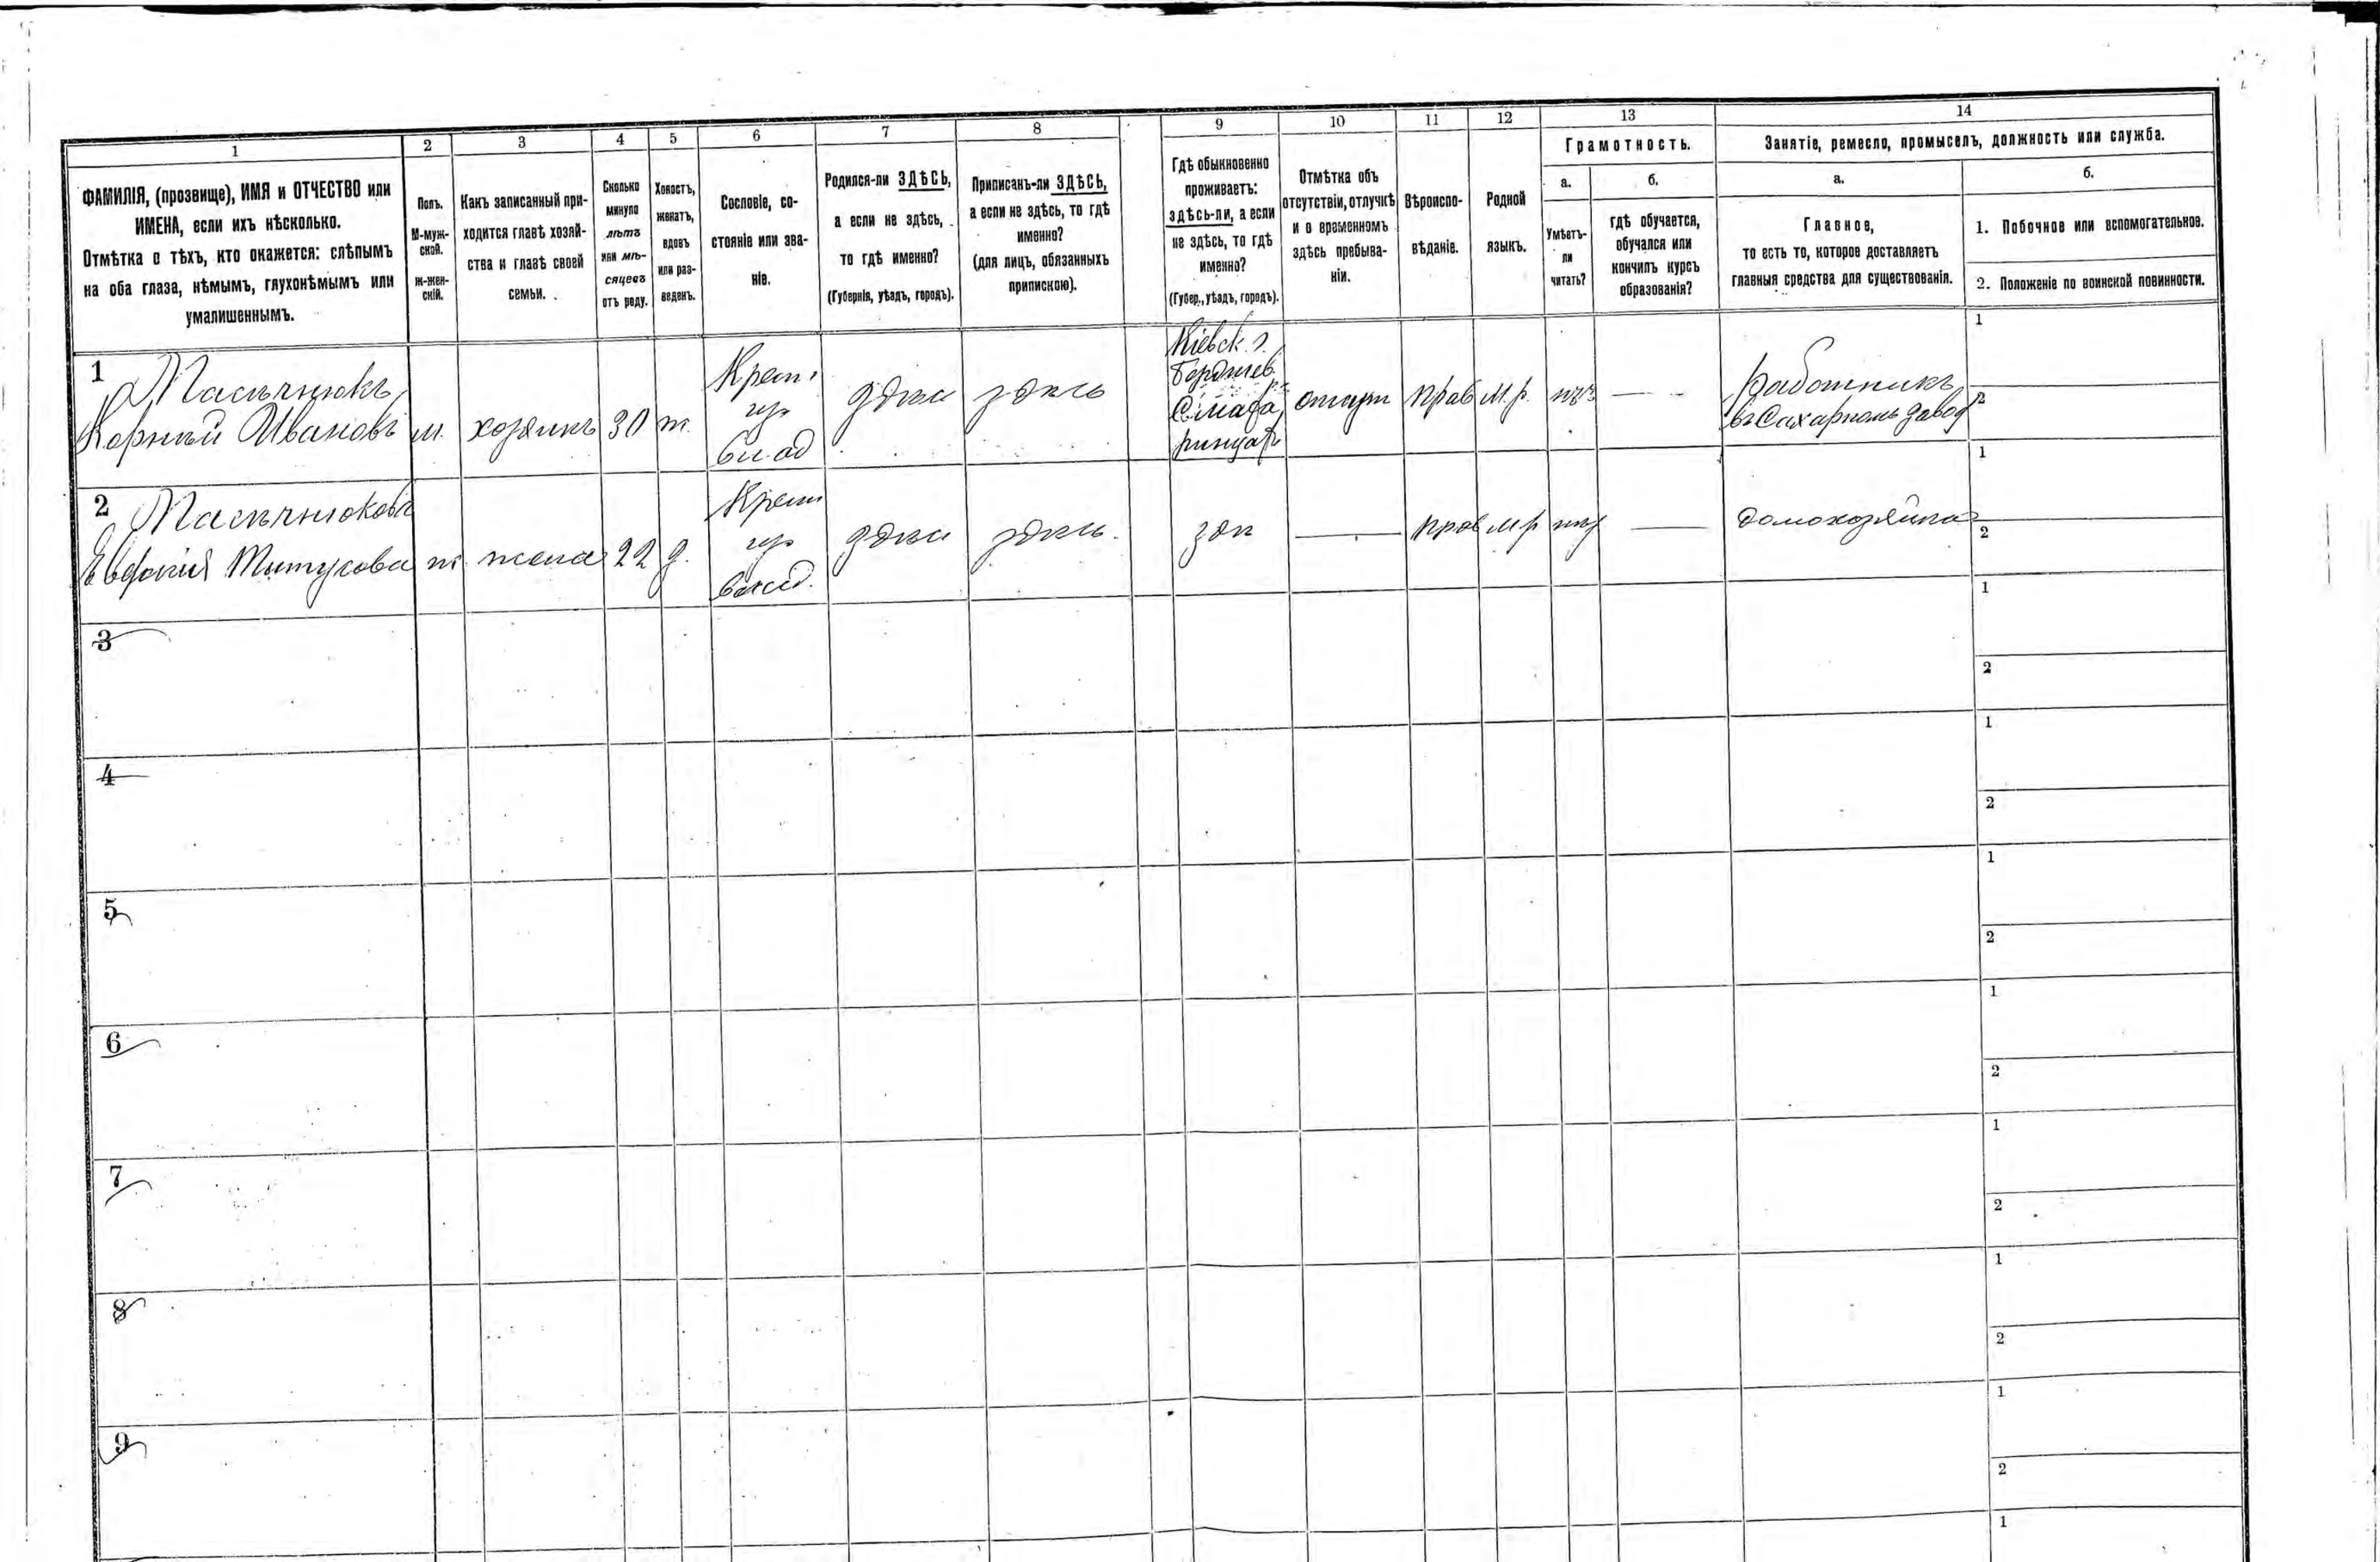 1 2 3 4 5 6 7 8 9 10 11 12 13 14
ФАМИЛІЯ, (прозвище), ИМЯ и ОТЧЕСТВО или
ИМЕНА, если ихъ нѣсколько.
Отмѣтка о тѣхъ, кто окажется: слѣпымъ
на оба глаза, нѣмымъ, глухонѣмымъ или
умалишеннымъ.
Полъ.
М-муж-
ской.
ж-жен-
скій.
Какъ записанный при-
ходится главѣ хозяй-
ства и главѣ своей
семьи.
Сколько
минуло
лѣтъ
или мѣ-
сяцевъ
отъ роду.
Холостъ,
женатъ,
вдовъ
или раз-
веденъ.
Сословіе, со-
стояніе или зва-
ніе.
Родился-ли ЗДѢСЬ,
а если не здѣсь,
то гдѣ именно?
(Губернія, уѣздъ, городъ).
Приписанъ-ли ЗДѢСЬ,
а если не здѣсь, то гдѣ
именно?
(для лицъ, обязанныхъ
припискою).
Гдѣ обыкновенно
проживаетъ:
здѣсь-ли, а если
не здѣсь, то гдѣ
именно?
(Губер., уѣздъ, городъ).
Отмѣтка объ
отсутствіи, отлучкѣ
и о временномъ
здѣсь пребыва-
ніи.
Вѣроиспо-
вѣданіе.
Родной
языкъ.
Грамотность.
а.
Умѣетъ-
ли
читать?
б.
гдѣ обучается,
обучался или
кончилъ курсъ
образованія?
Занятіе, ремесло, промыселъ, должность или служба.
а.
Главное,
то есть то, которое доставляетъ
главныя средства для существованія.
б.
1. Побочное или вспомогательное.
2. Положеніе по воинской повинности.
1
Корній Ивановъ
м.
хозяинъ
30
ж.
Крест.
здѣсь
здѣсь
Кіевск. г.
Бердичев.
отсут
прав
м.р.
нѣт
—
работникъ
въ Сахарномъ завод
1
2
2
жена
22
з.
Крест
здѣсь
здѣсь.
зд
—
прав
м р
—
домохозяйка
1
2
3
1
2
4
1
2
5
1
2
6
1
2
7
1
2
8
1
2
9
1
2
1